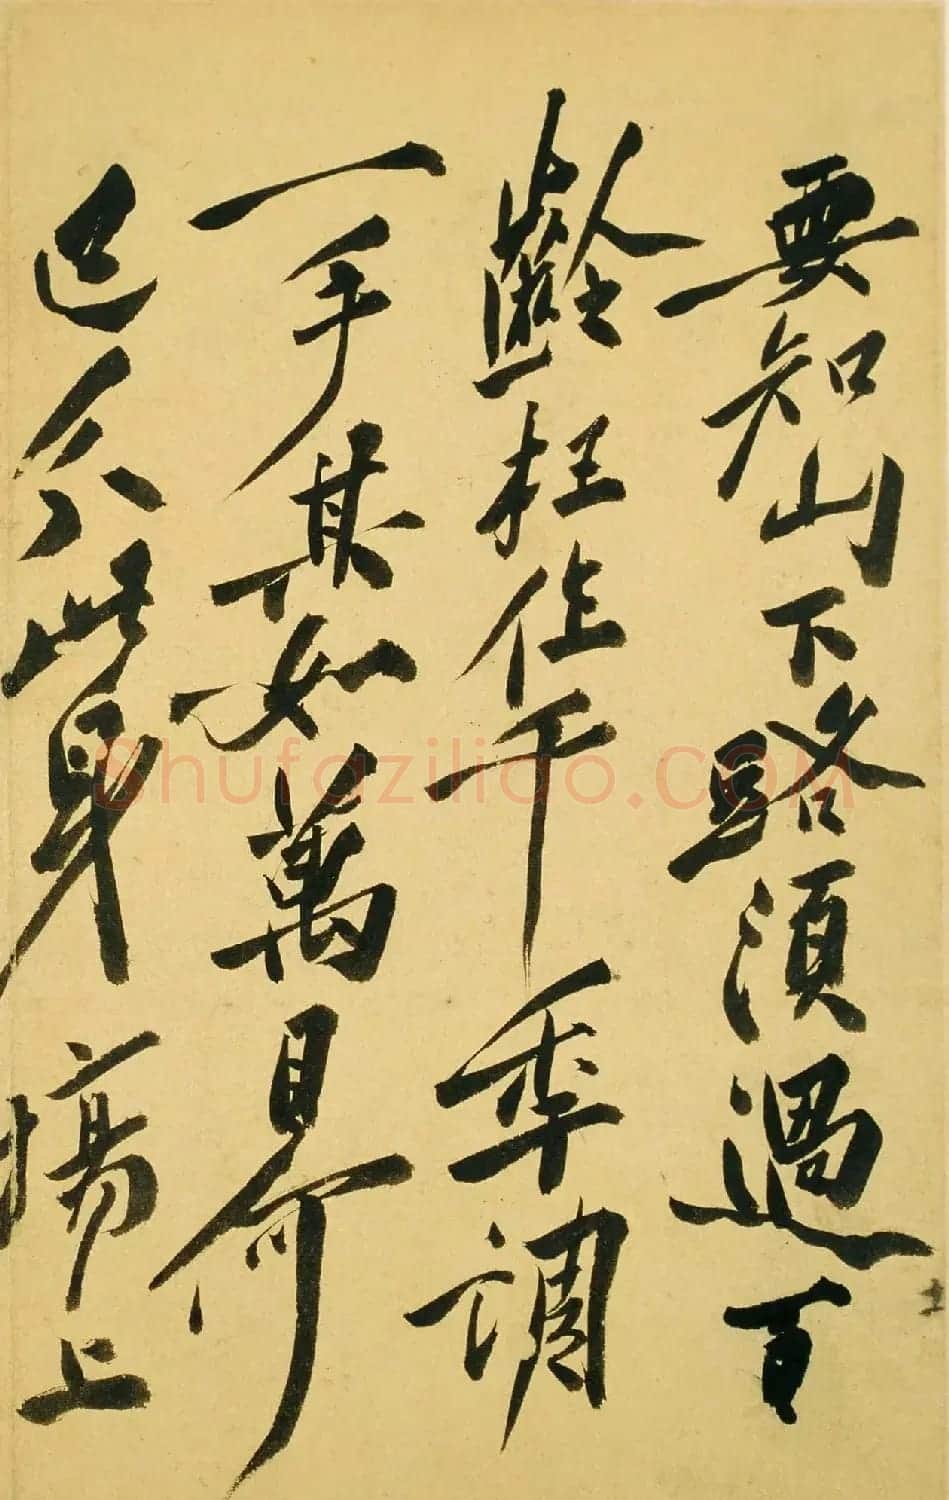 要知山下路須過百
齡枉住千年調
一手其如萬目何
已分此身
上
Shufaziliao.COM